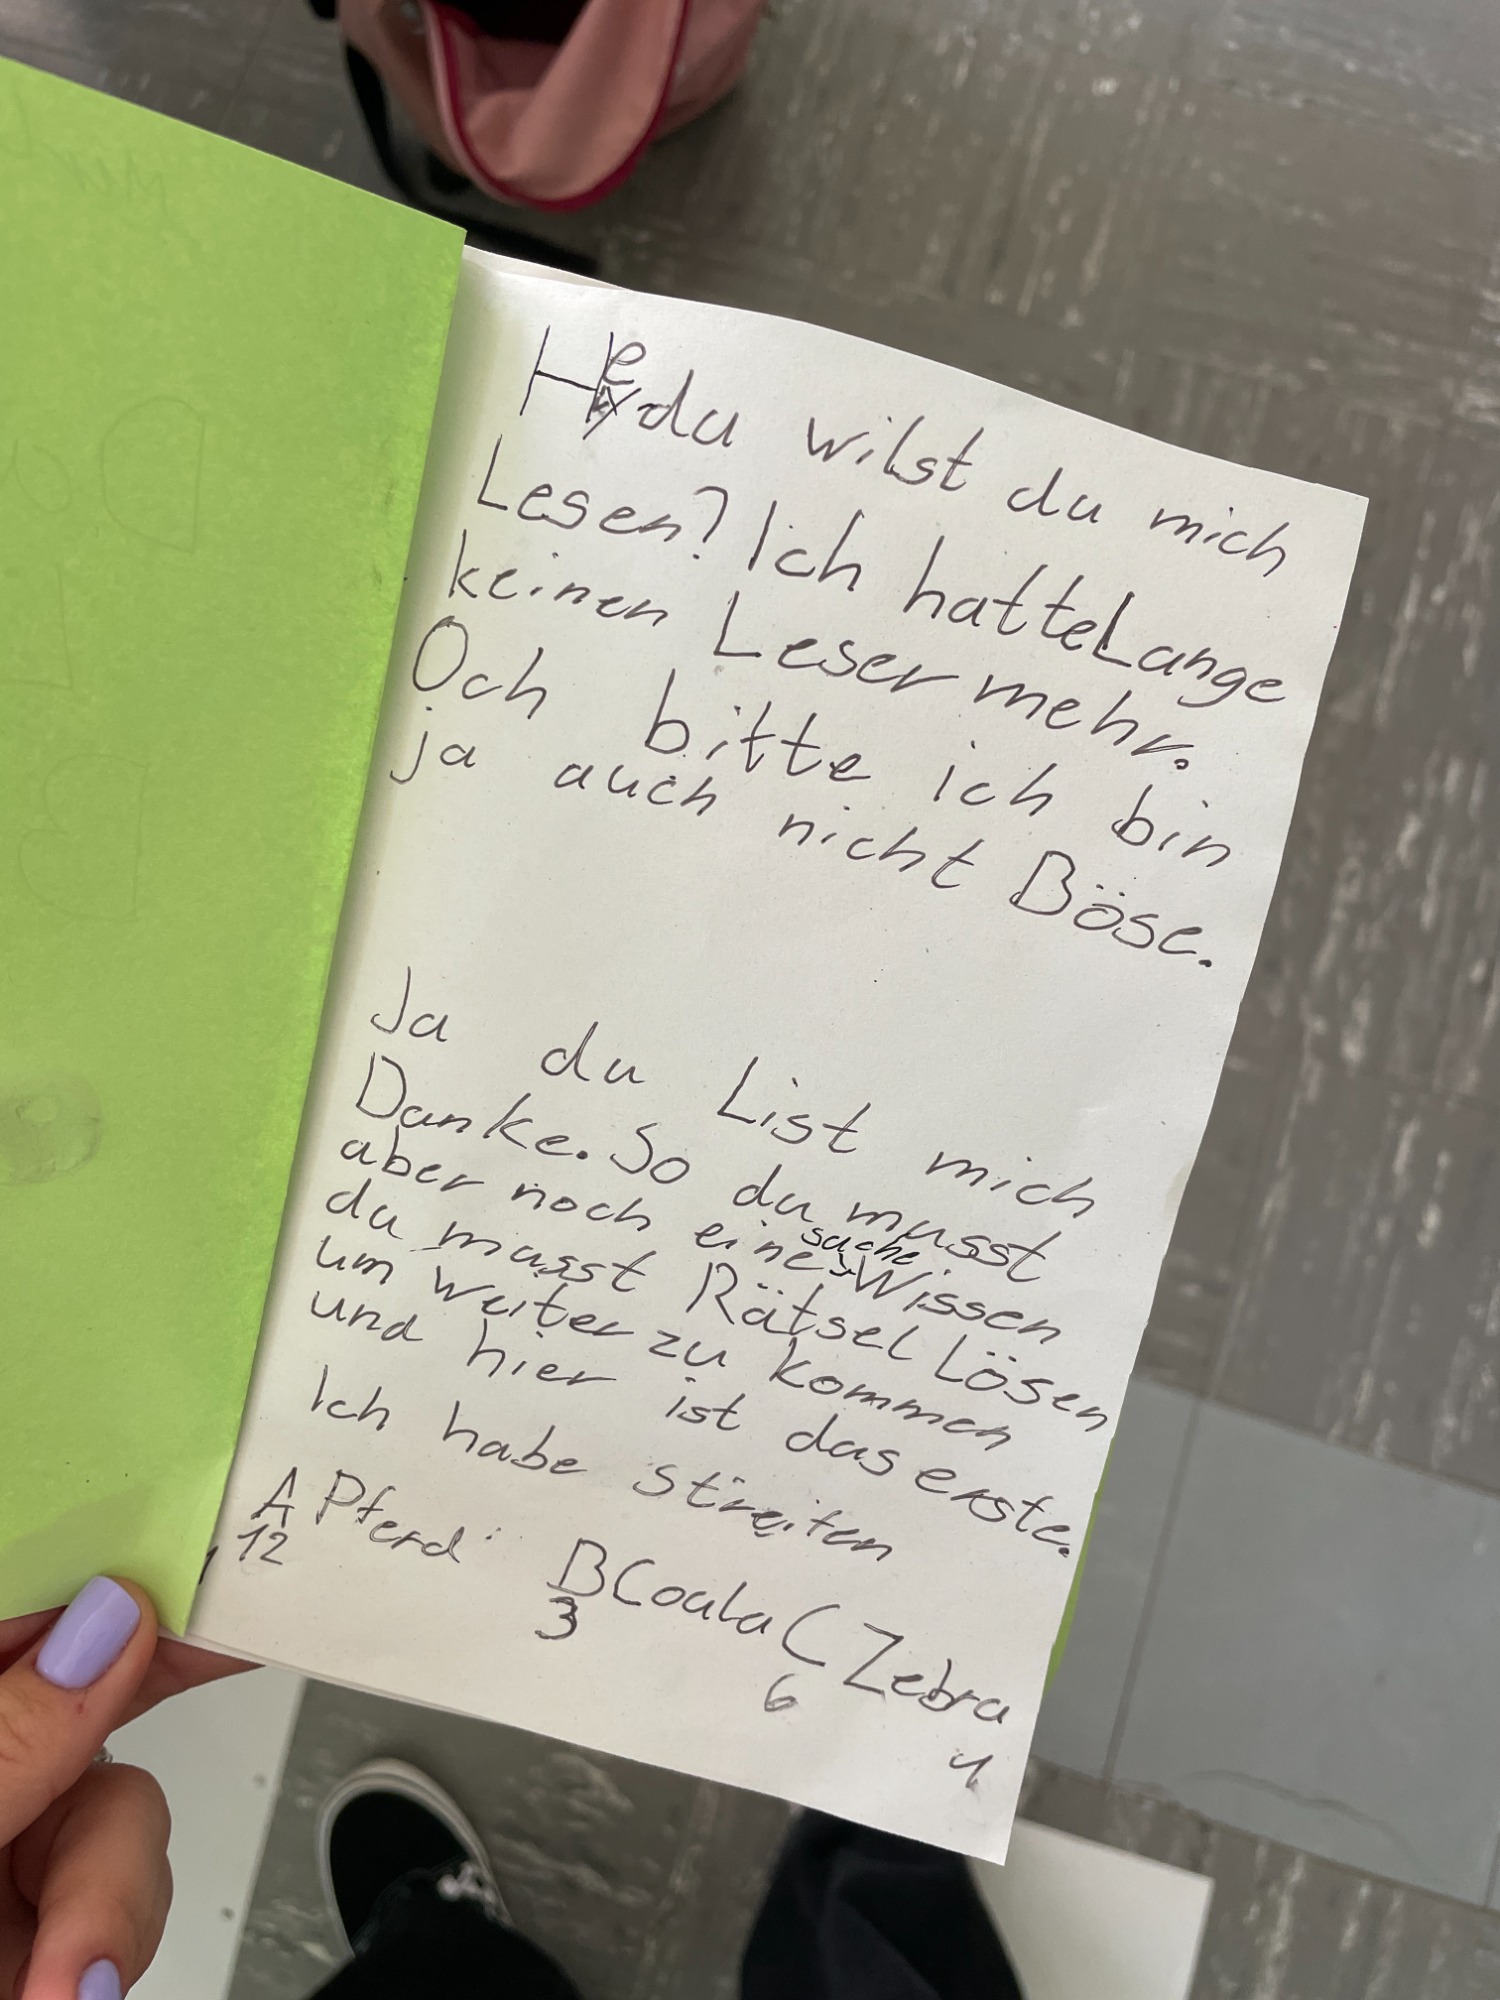 Hey du wilst du mich
Lesen? Ich hatte Lange
keinen Leser mehr.
Och bitte ich bin
ja auch nicht Böse.
Ja du List mich
Danke. So du musst
aber noch eine sache Wissen
du musst Rätsel Lösen
um weiter zu kommen
und hier ist das erste.
Ich habe streifen
A Pferd B Coala C Zebra
12 3 6
4